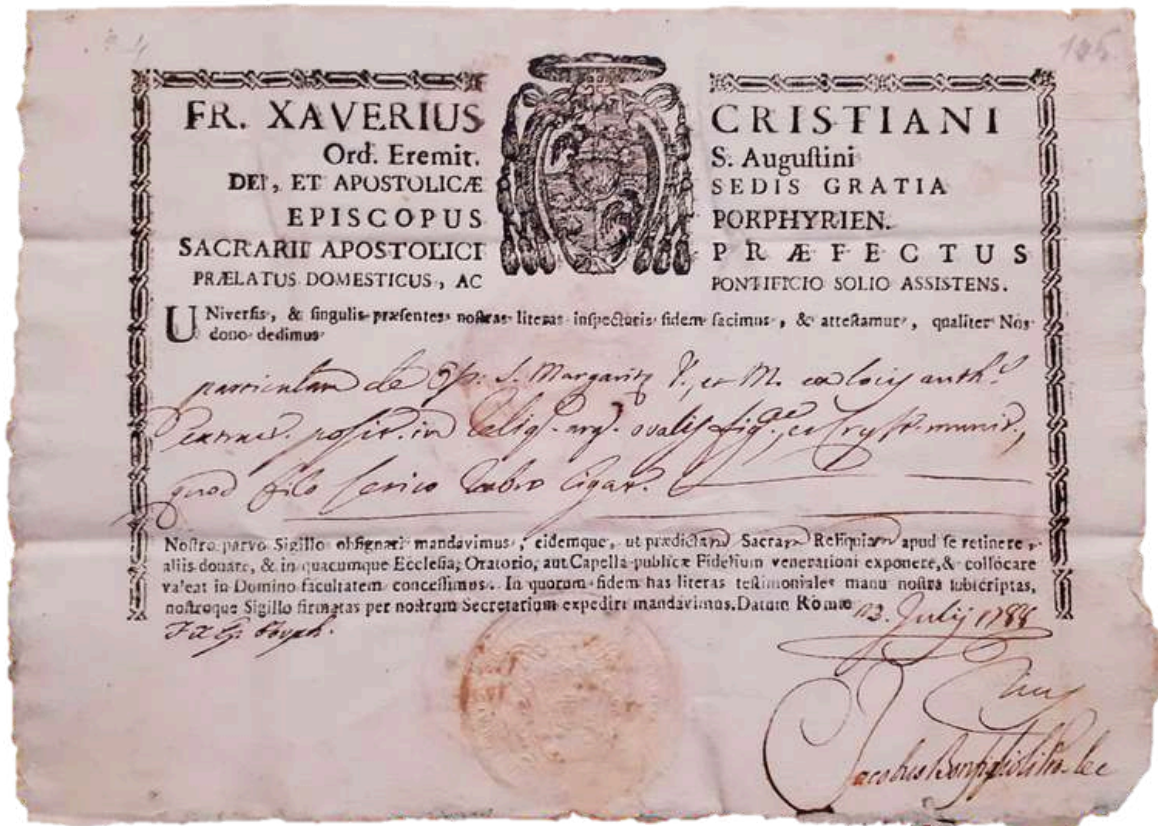 105.
FR. XAVERIUS CRISTIANI
Ord. Eremit. S. Auguſtini
DEI, ET APOSTOLICÆ SEDIS GRATIA
EPISCOPUS PORPHYRIEN.
SACRARII APOSTOLICI PRÆFECTUS
PRÆLATUS DOMESTICUS, AC PONTIFICIO SOLIO ASSISTENS.
UNiverſis, & ſingulis præſentes noſtras literas inſpecturis fidem facimus, & atteſtamur, qualiter Nos
dono dedimus
particulam de S. Margaritæ V., et M. ex locis auth.
extract. poſit. in reliq. arg. ovalis fig.æ, et cryſt. munit.,
quod filo ſerico rubro ligat.
Noſtro parvo Sigillo obſignari mandavimus, eidemque, ut prædictam Sacram Reliquiam apud ſe retinere,
aliis donare, & in quacumque Eccleſia, Oratorio, aut Capella publicæ Fidelium venerationi exponere, & collocare
valeat in Domino facultatem conceſſimus. In quorum fidem has literas teſtimoniales manu noſtra ſubſcriptas,
noſtroque Sigillo firmatas per noſtrum Secretarium expediri mandavimus. Datum Romæ 13. Julij 1788
F X Ep. Porph.
Jacobus